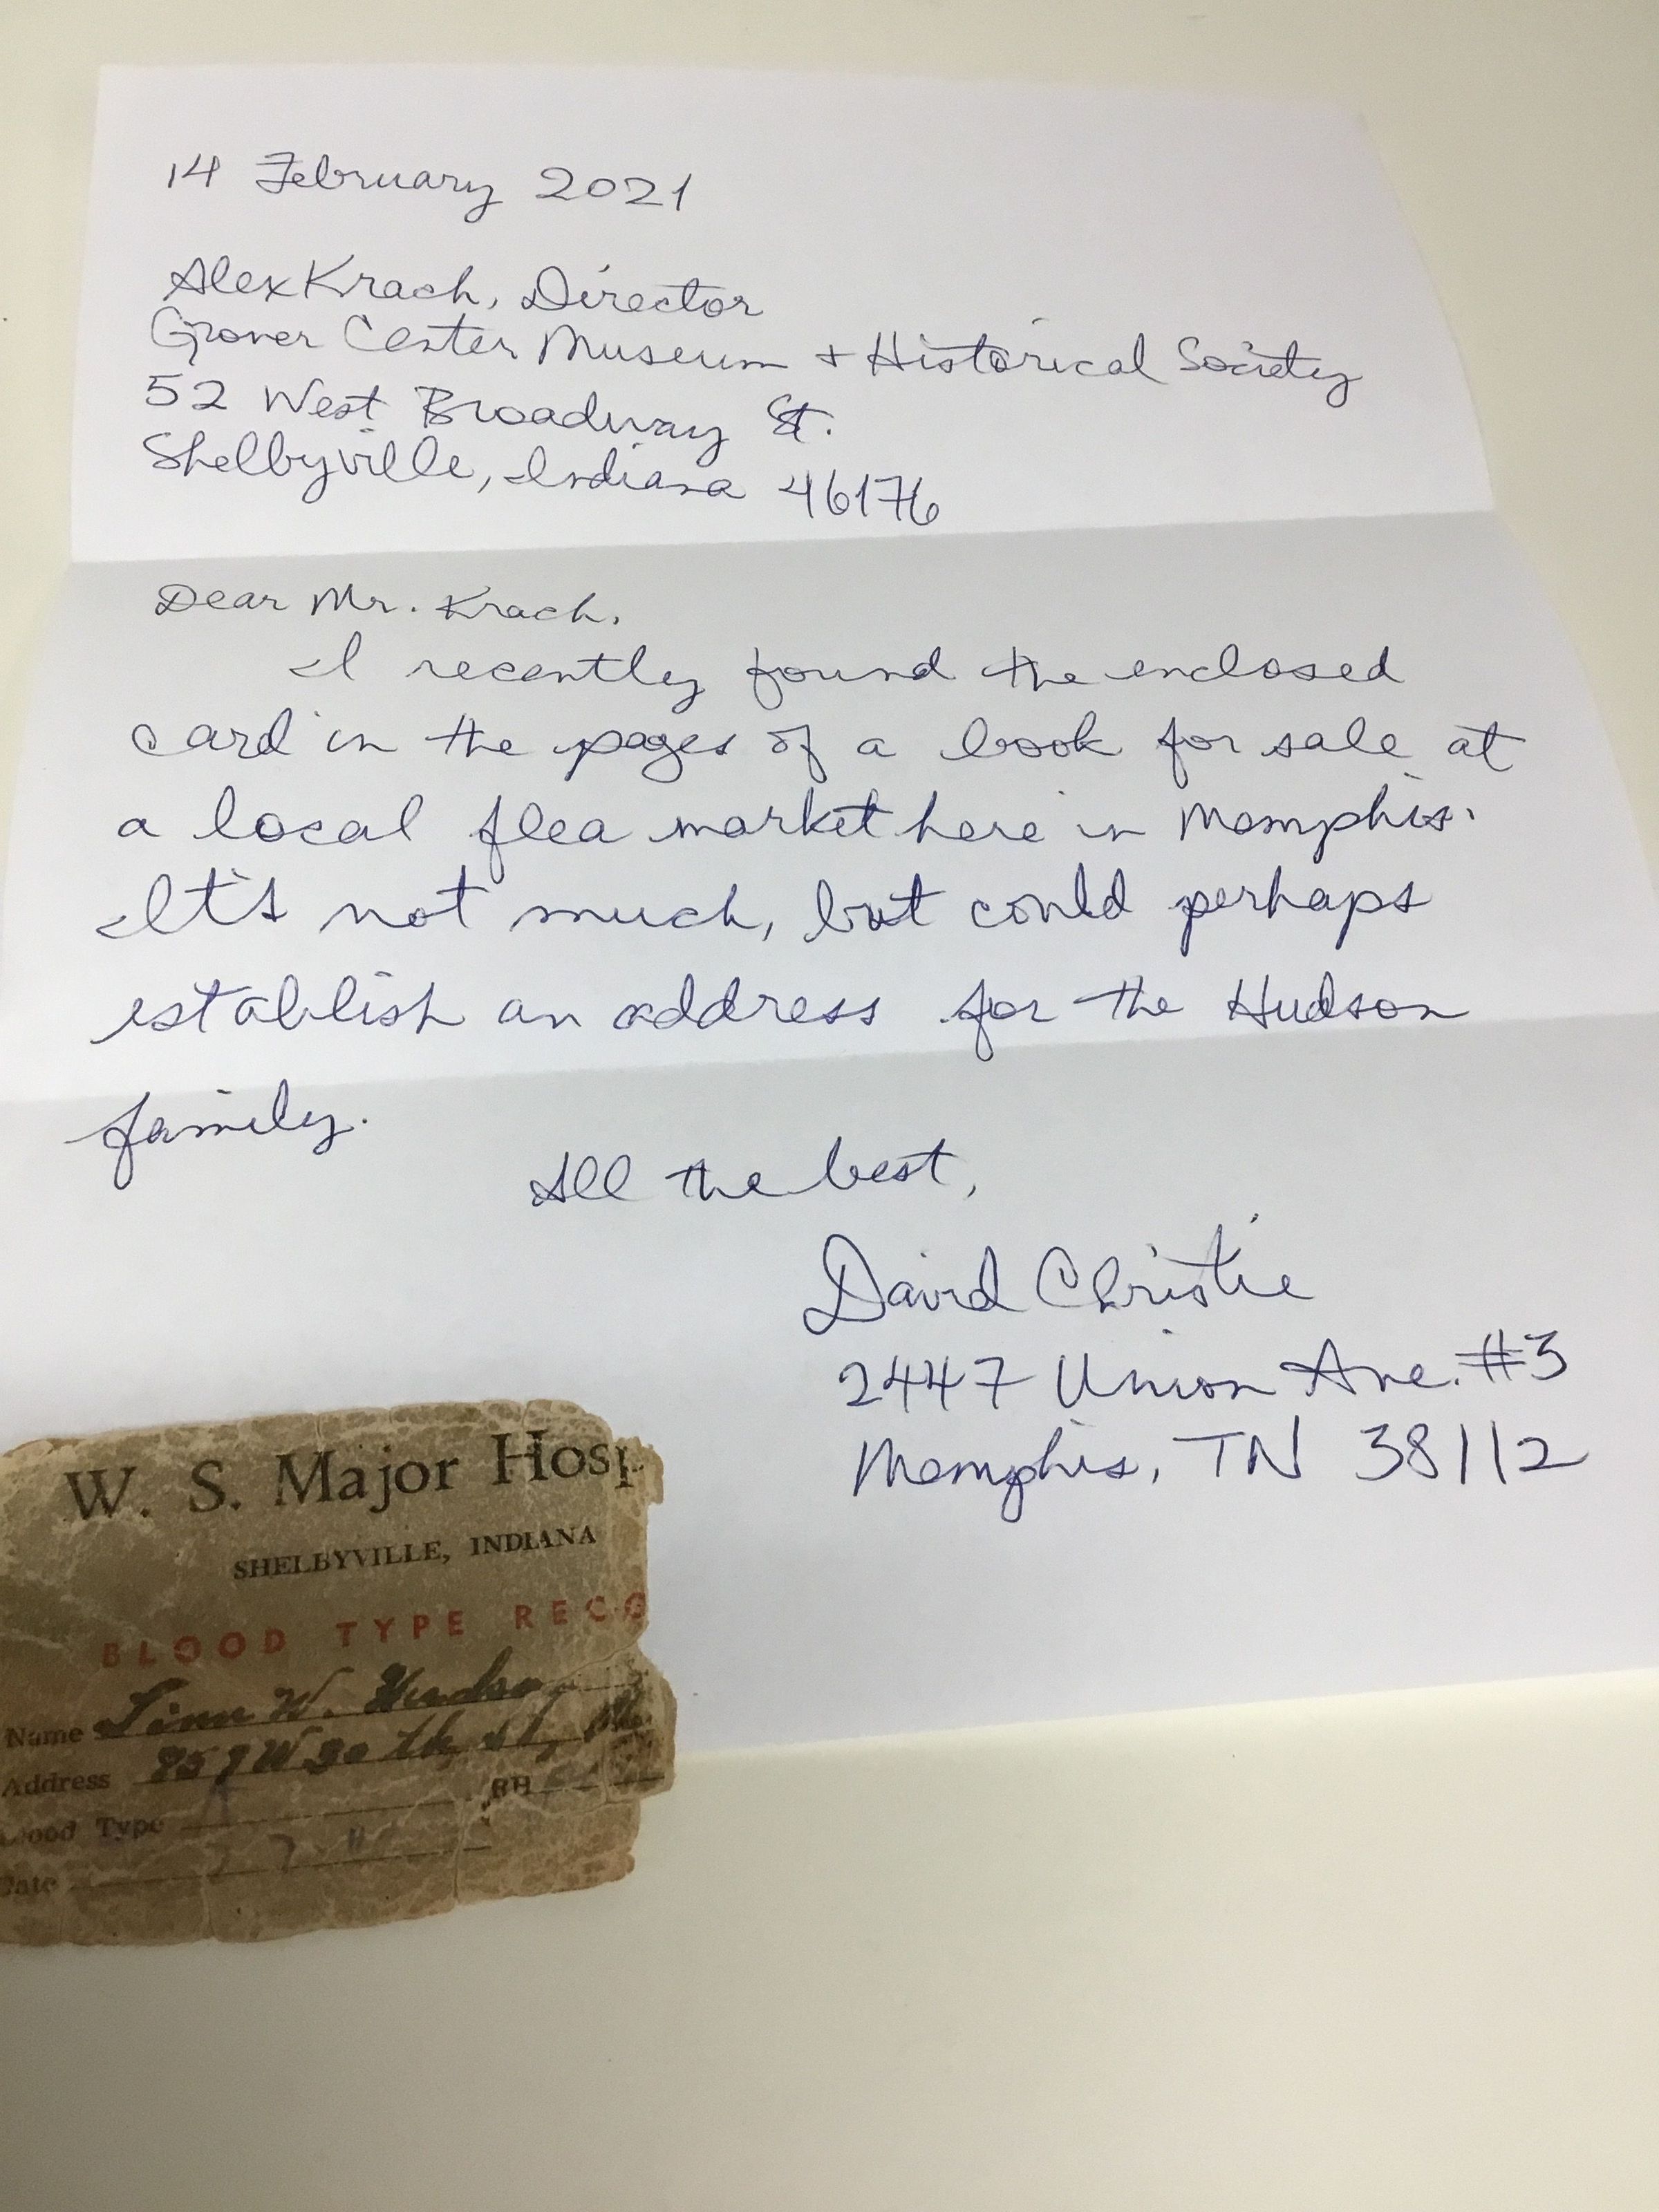 14 February 2021
Alex Krach, Director
Grover Center Museum + Historical Society
52 West Broadway St.
Shelbyville, Indiana 46176
Dear Mr. Krach,
I recently found the enclosed
card in the pages of a book for sale at
a local flea market here in Memphis.
It's not much, but could perhaps
establish an address for the Hudson
family.
All the best,
David Christie
2447 Union Ave. #3
Memphis, TN 38112
W. S. Major Hosp
SHELBYVILLE, INDIANA
BLOOD TYPE RECO
Name Linn W. Hudso
Address W 30 th st,
Blood Type A RH
Date